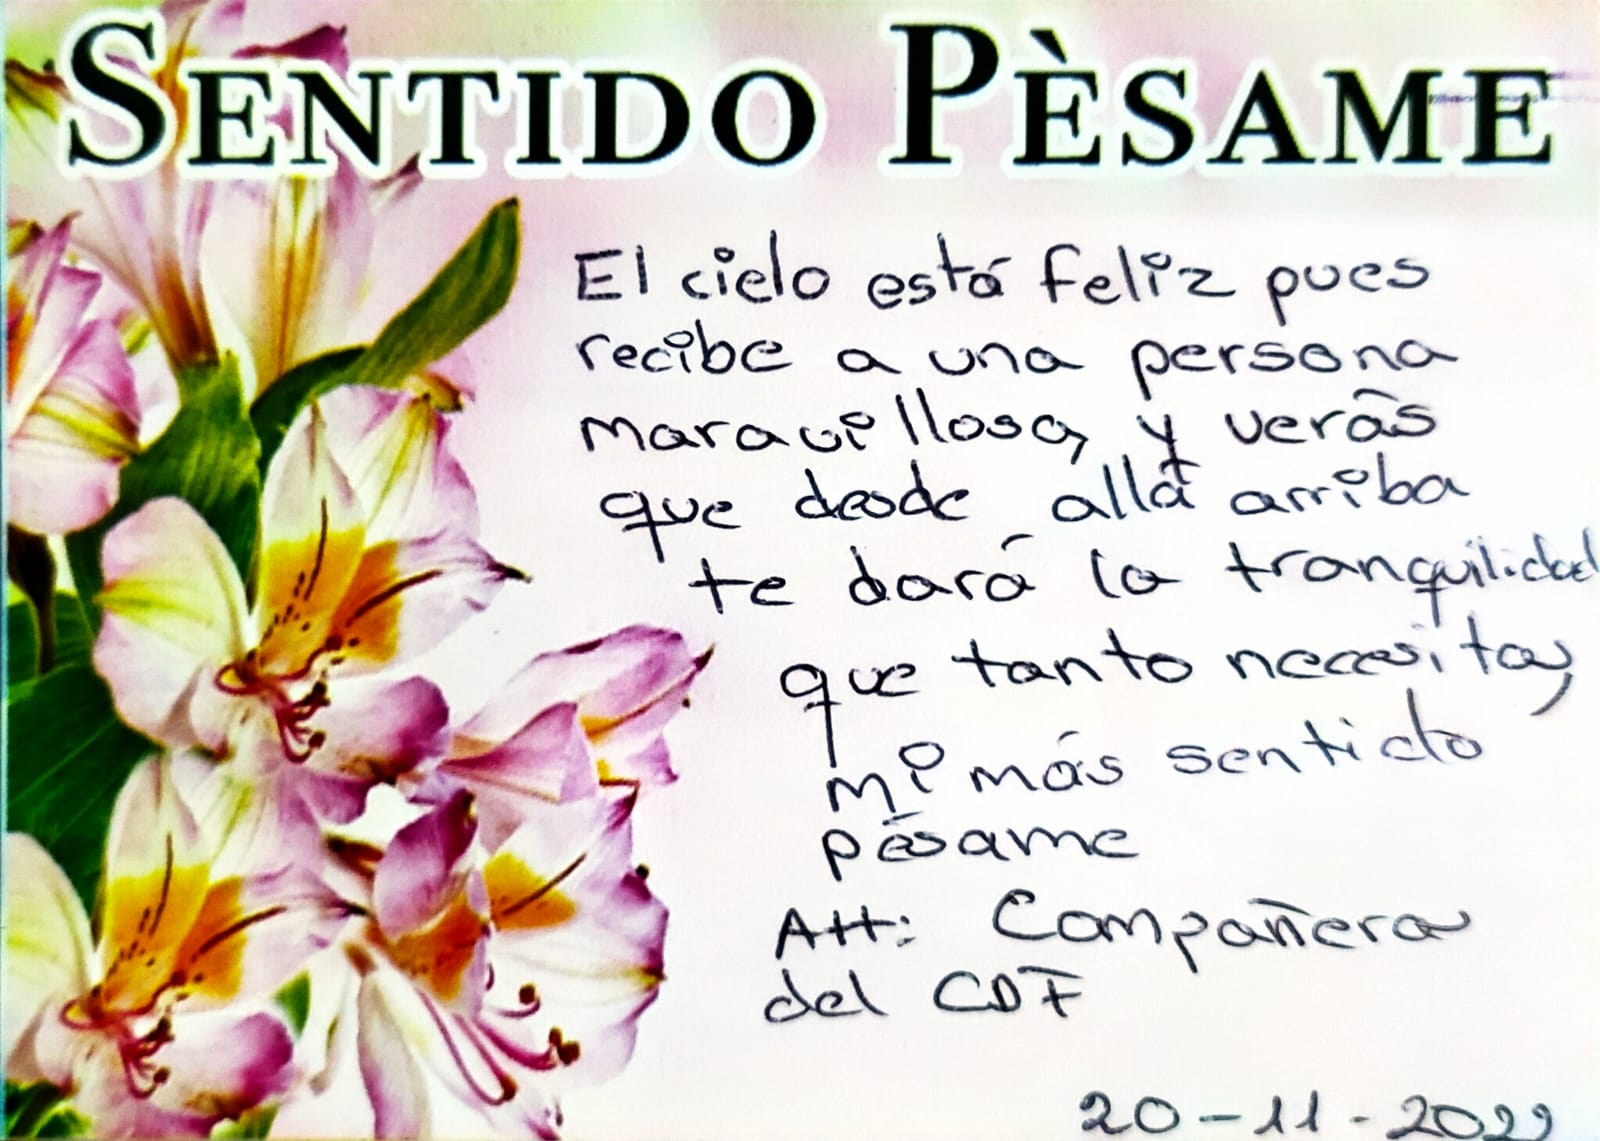 SENTIDO PÈSAME
El cielo está feliz pues
recibe a una persona
maravillosa, y verás
que desde allá arriba
te dará la tranquilidad
que tanto necesitas,
mi más sentido
pésame
Att: Compañera
del CDF
20-11-2022